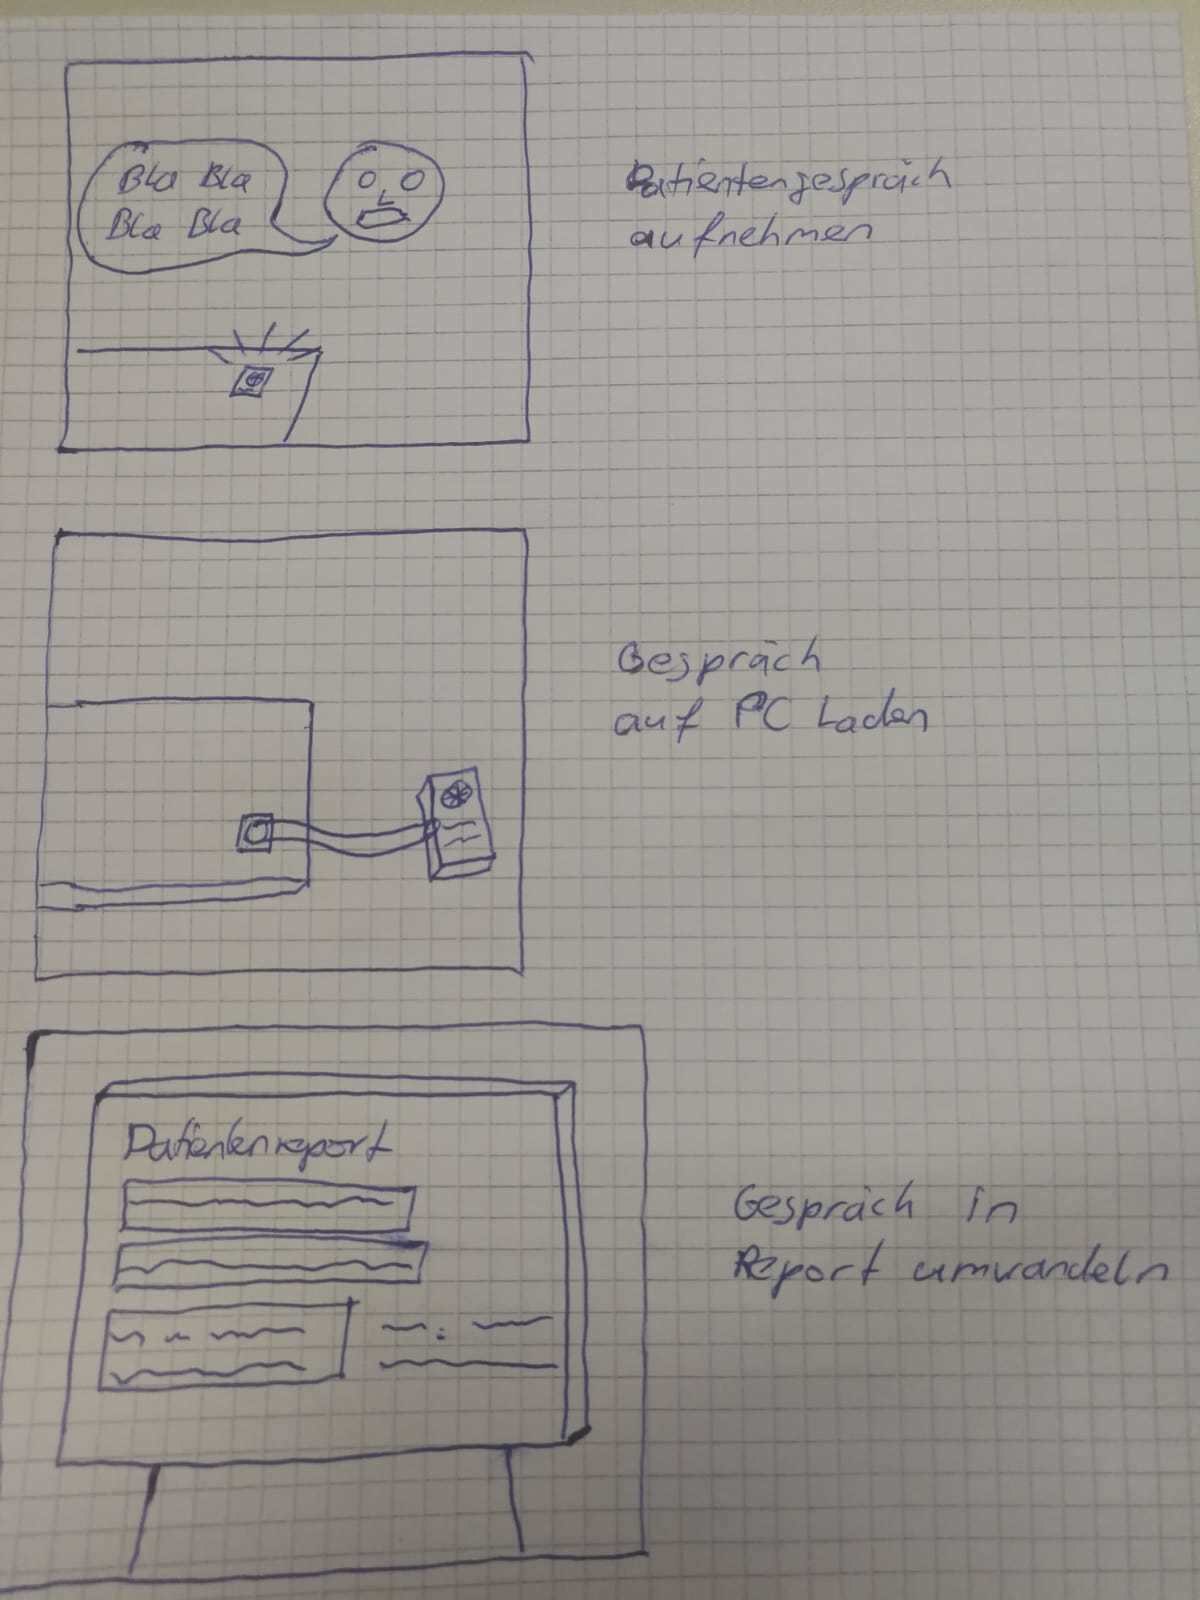 Bla Bla
Bla Bla
Patientengespräch
aufnehmen
Gespräch
auf PC Laden
Patientenreport
Gespräch in
Report umwandeln